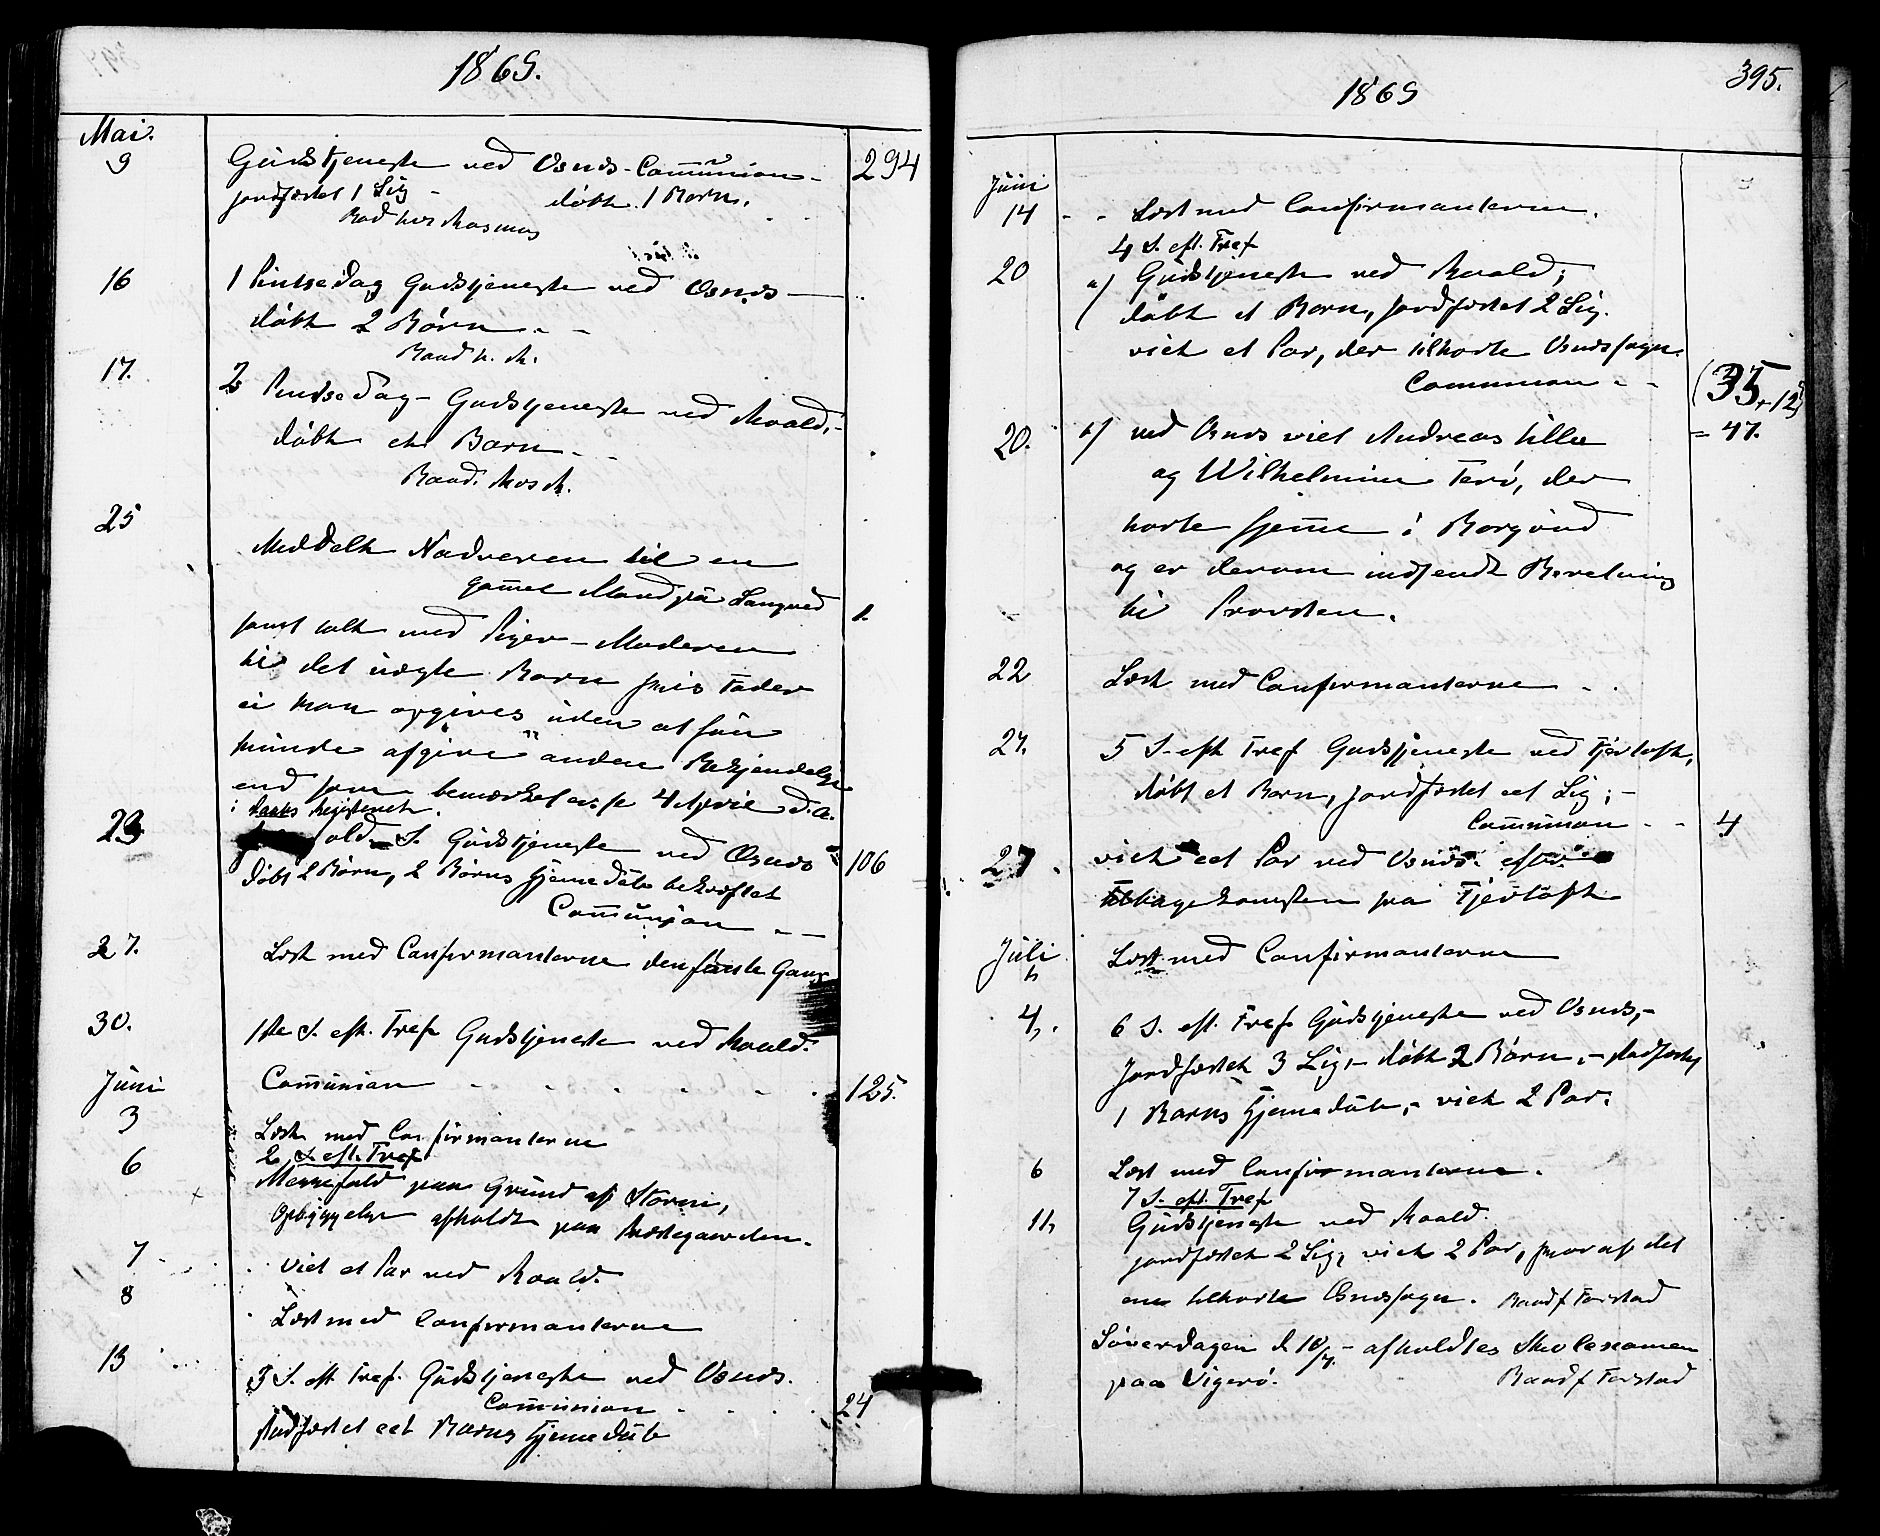 1869.
Mai.
9 Gudstjeneste ved Osnes - Communion - 294
jordfæstet 1 Lig - døbt 1 Barn.
Baad hos Rasmus
16 1 Pintsedag Gudstjeneste ved Osnes -
døbt 2 Børn - -
Baad h. R.
17. 2 Pintsedag - Gudstjeneste ved Roald, -
døbt et Barn - -
Baad. hos R.
25 Meddelt Nadveren til en
gammel Mand paa Langved 1.
samt talt med Pigen - Moderen
til det uægte Barn hvis Fader
ei kan opgives uden at hun
kunde afgive anden Bekjendelse
end som bemærket er pr 4 April d.a.
i Daabs Registeret.
23 S. Gudstjeneste ved Osnes 106
døbt 2 Børn, 2 Børns Hjemmedaab bekræftet
Communion - -
27. Læst med Confirmanterne den første Gang
30. 1ste S. eft. Tref Gudstjeneste ved Roald.
Communion - - - - - - 125.
Juni
3 Læst med Confirmanterne
2 S. eft. Tref
6 Messefald paa Grund af Storm,
Opbyggelse afholdt paa Præstegaarden.
7 - viet et Par ved Roald.
8 Læst med Confirmanterne
13 3 S. eft Tref. Gudstjeneste ved Osnes.
Communion - - - - 24
stadfæstet eet Barns Hjemmedaab
1869
395.
Juni
14 - - Læst med Confirmanterne.
4 S. eft. Tref
20 a) Gudstjeneste ved Roald;
døbt et Barn, jordfæstet 2 Lig.
viet et Par, der tilhørte Osnessogn.
Communion - - (35 + 12)
20. b) ved Osnes viet Andreas Lillø = 47.
og Wilhelmine Terø, der
hørte hjemme i Borgund
og er derom indsendt Beretning
til Provsten.
22 Læst med Confirmanterne - .
27. 5 S. eft Tref Gudstjeneste ved Fjørtoft,
døbt et Barn, jordfæstet eet Lig; -
Communion - - 4
27 . viet eet Par ved Osnes efter
Tilbagekomsten fra Fjørtoft
Juli
Læst med Confirmanterne
4, . 6 S. eft. Tref Gudstjeneste ved Osnes, -
Jordfæstet 3 Lig, - døbt 2 Børn, - stadfæstet
1 Barns Hjemmedaab, - viet 2 Par.
6 Læst med Confirmanterne.
7 S. eft. Tref
11, Gudstjeneste ved Roald.
jordfæstet 2 Lig, viet 2 Par, hvoraf det
ene tilhørte Osnessogn. Baad f Farstad
Løverdagen d 10/7. - afholdtes Skolexamen
paa Vigerø. Baad f Farstad